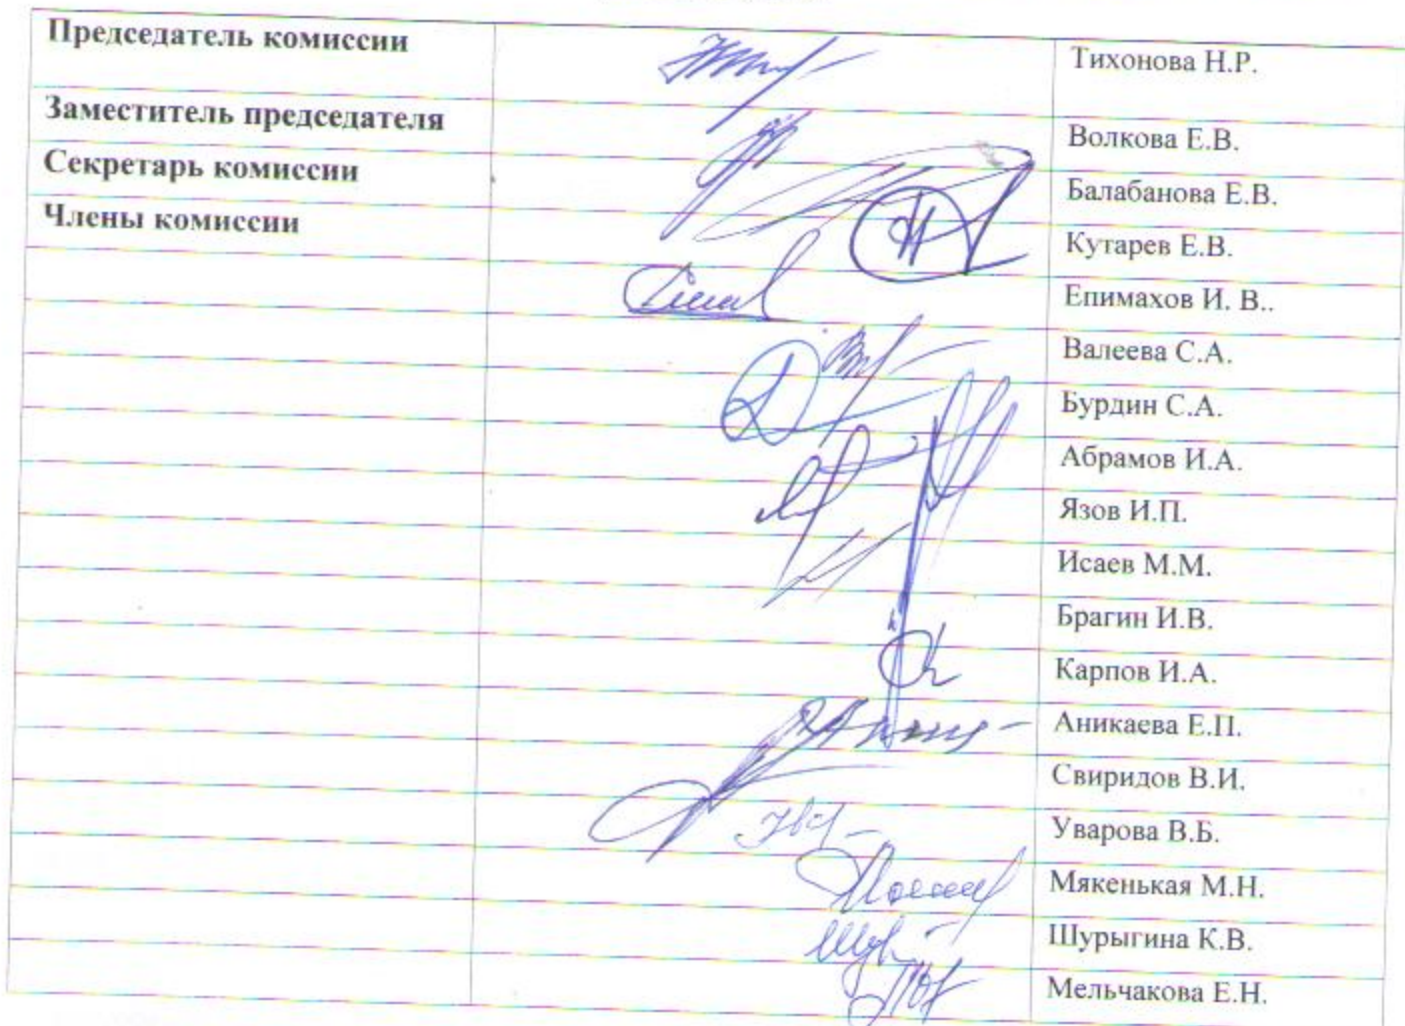 Председатель комиссии Тихонова Н.Р.
Заместитель председателя Волкова Е.В.
Секретарь комиссии Балабанова Е.В.
Члены комиссии Кутарев Е.В.
Епимахов И. В..
Валеева С.А.
Бурдин С.А.
Абрамов И.А.
Язов И.П.
Исаев М.М.
Брагин И.В.
Карпов И.А.
Аникаева Е.П.
Свиридов В.И.
Уварова В.Б.
Мякенькая М.Н.
Шурыгина К.В.
Мельчакова Е.Н.